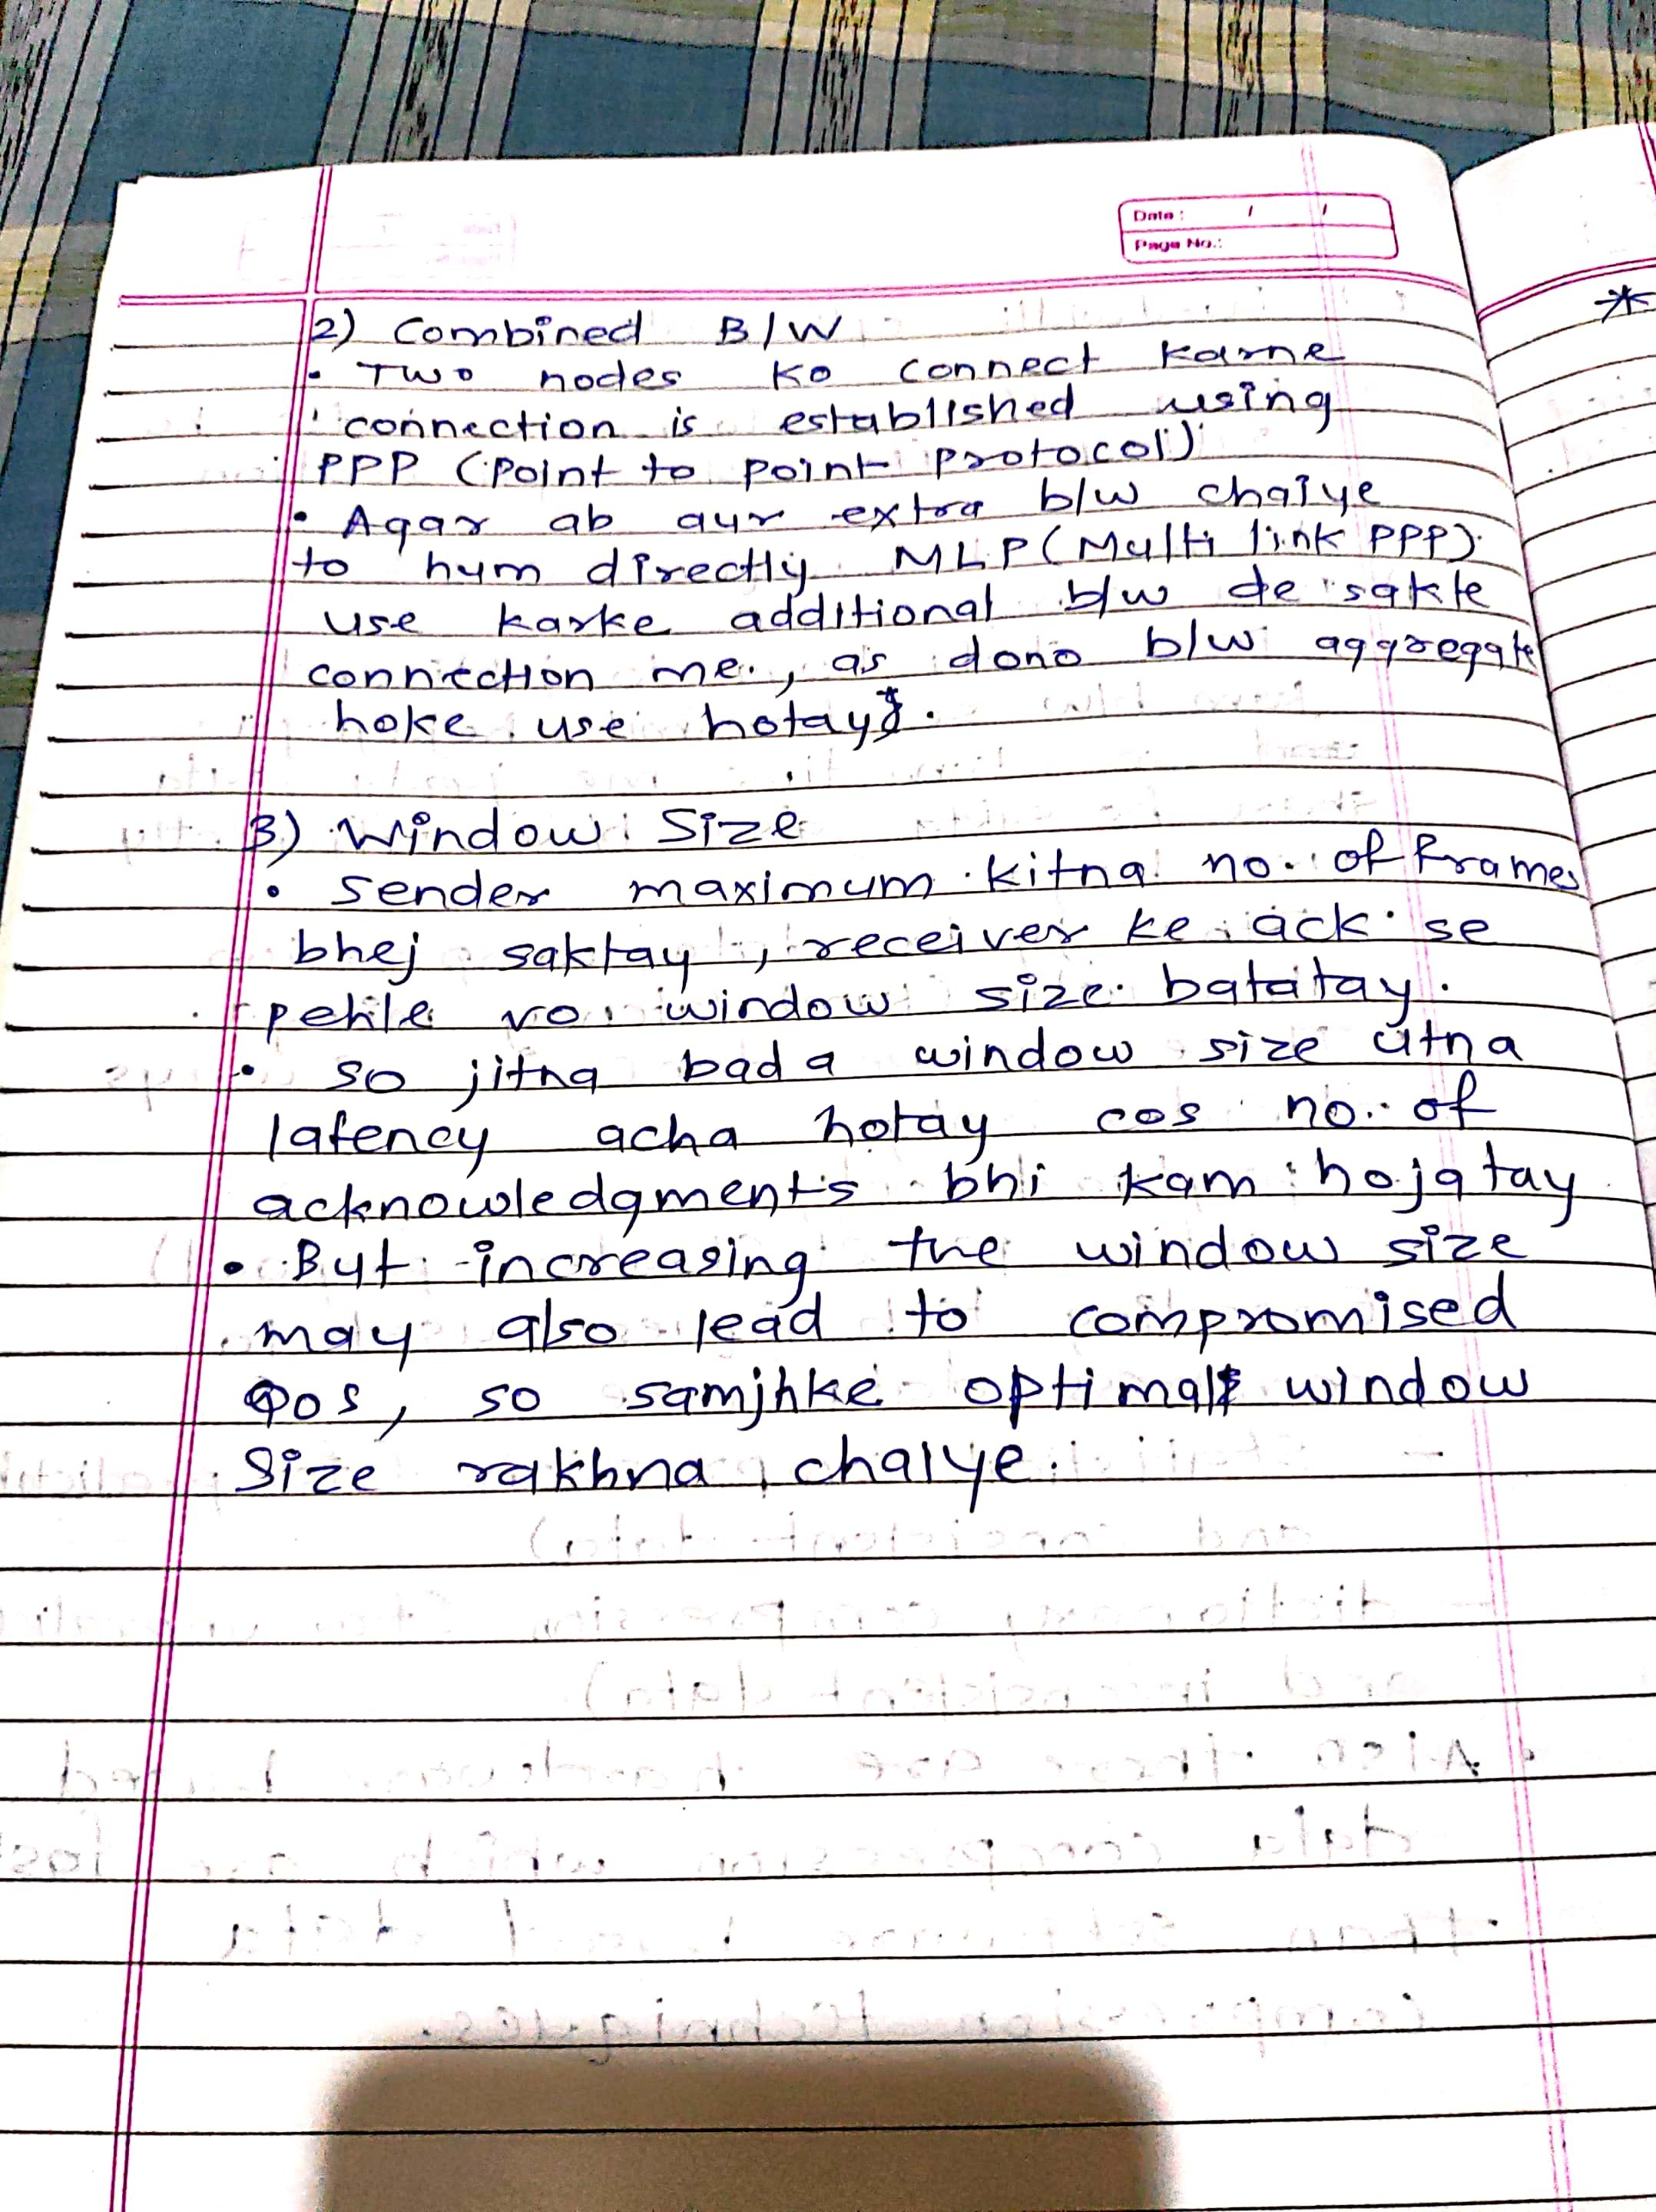 Date : / /
Page No.:
*
2) Combined B/W
• Two nodes ko connect karne
connection is established using
PPP (Point to point protocol)
• Agar ab aur extra b/w chaiye
to hum directly MLP (Multi link PPP)
use karke additional b/w de sakte
connection me., as dono b/w aggregate
hoke use hotay.
3) Window Size
• Sender maximum kitna no. of frames
bhej saktay, receiver ke ack se
pehile vo window size batatay.
• so jitna bada window size utna
latency acha hotay cos no. of
acknowledgments bhi kam hojatay
• But increasing the window size
may also lead to compromised
QoS, so samjhke optimal window
size rakhna chaiye.